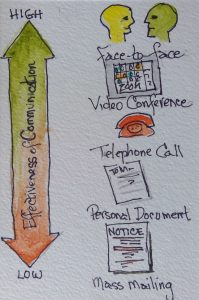 HIGH
Face-to-face
Zoom
Video Conference
Effectiveness of Communication
Telephone Call
Personal Document
NOTICE
LOW
Mass Mailing